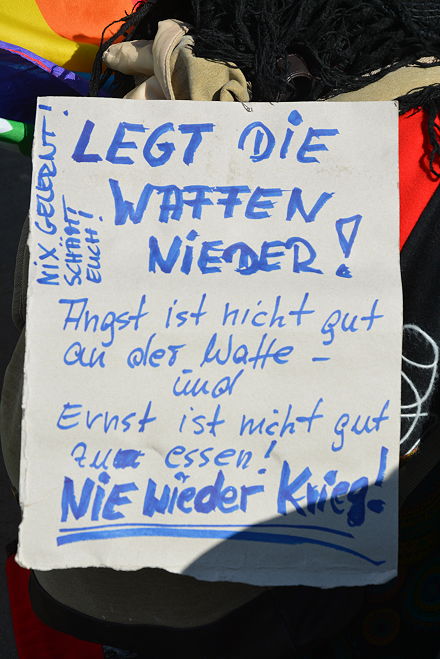 NIX GELERNT!
SCHÄMT
EUCH!
LEGT DIE
WAFFEN
NIEDER!
Angst ist nicht gut
an der Waffe –
und
Ernst ist nicht gut
zum essen!
NIE wieder Krieg!